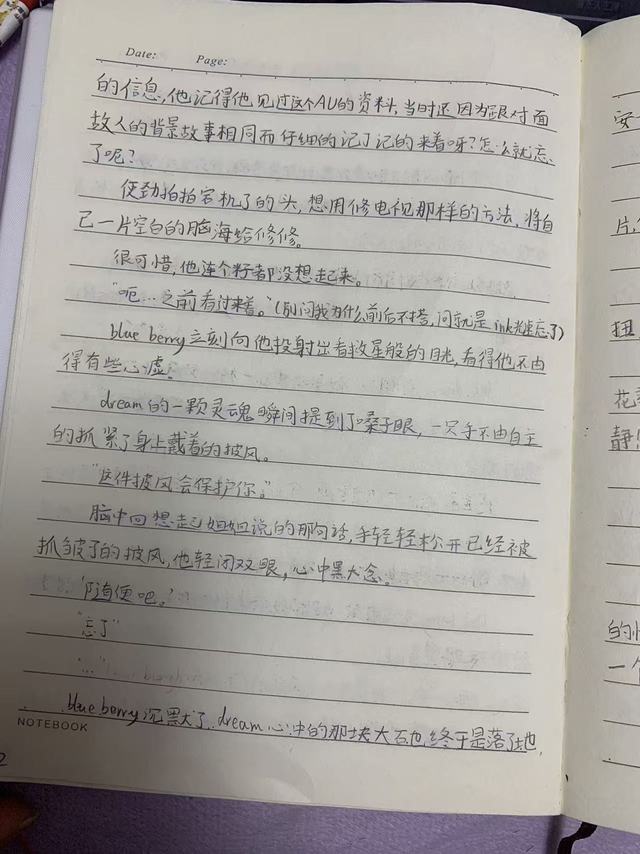 Date: Page:
的信息,他记得他见过这个AU的资料,当时还因为跟对面
故人的背景故事相同而仔细的记了记的来着呀?怎么就忘
了呢?
使劲拍拍宕机了的头,想用修电视那样的方法,将自
己一片空白的脑海给修修。
很可惜,他连个籽都没想起来。
"呃...之前看过来着。"(别问我为什么前后不搭,问就是ink光速忘了)
blue berry立刻向他投射出看救星般的目光,看得他不由
得有些心虚。
dream的一颗灵魂瞬间提到了嗓子眼,一只手不由自主
的抓紧了身上戴着的披风。
"这件披风会保护你。"
脑中回想起姐姐说的那句话,手轻轻松开已经被
抓皱了的披风,他轻闭双眼,心中默念。
'随便吧。'
"忘了"
"..."
blue berry沉默了.dream心中的那块大石也终于是落了地,
NOTEBOOK
2
安一
片,
扭
花
静!
的
一个